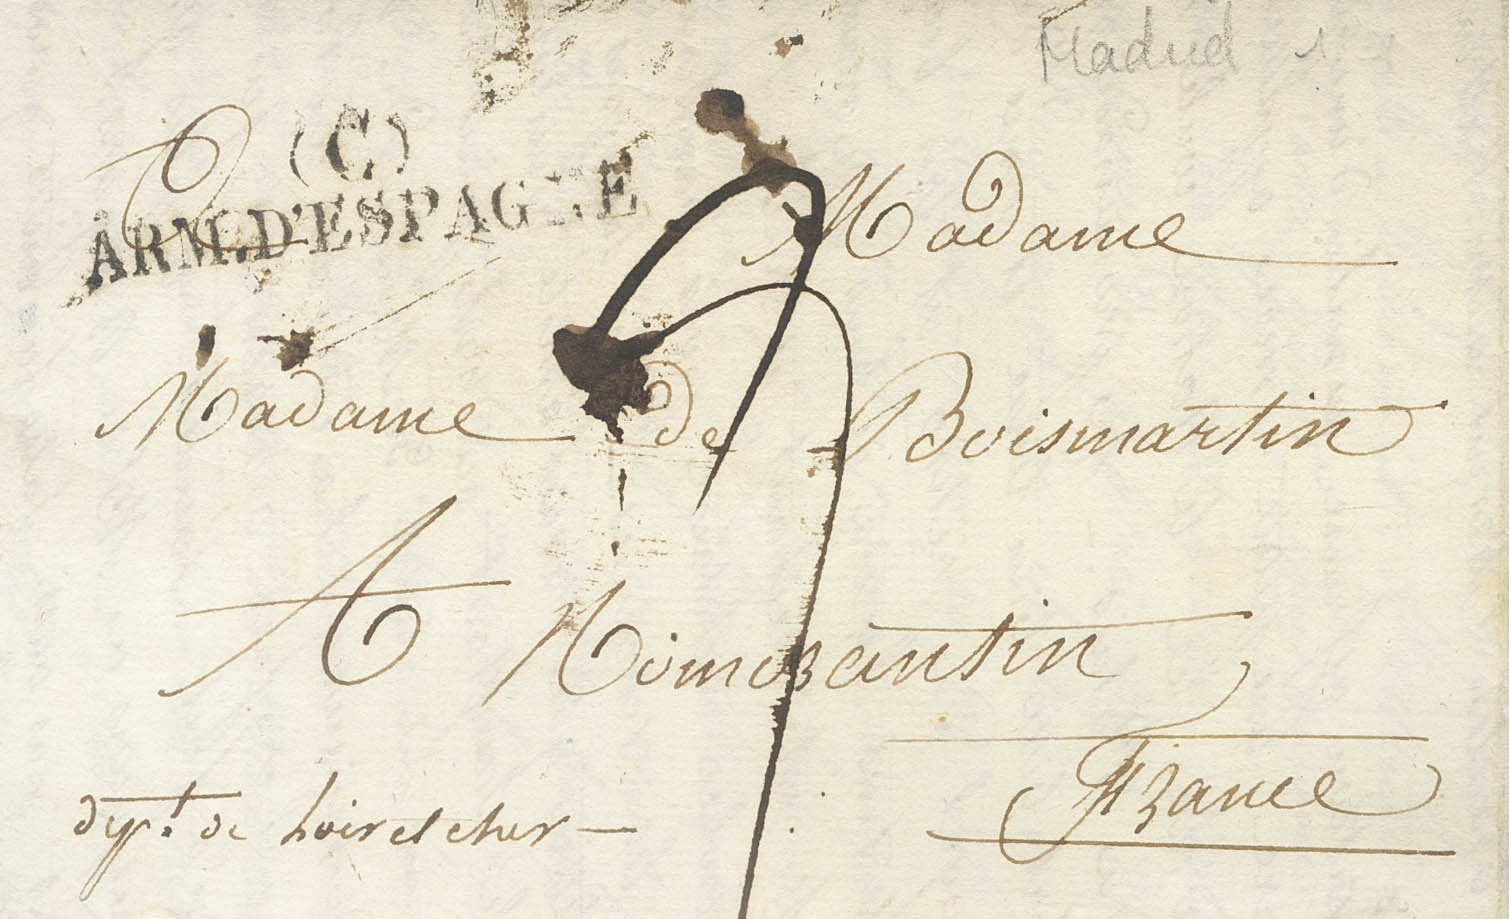 Madrid
(C)
ARM. D'ESPAGNE
A Madame
Madame de Boismartin
A Romorantin
France
dept. de Loir et cher